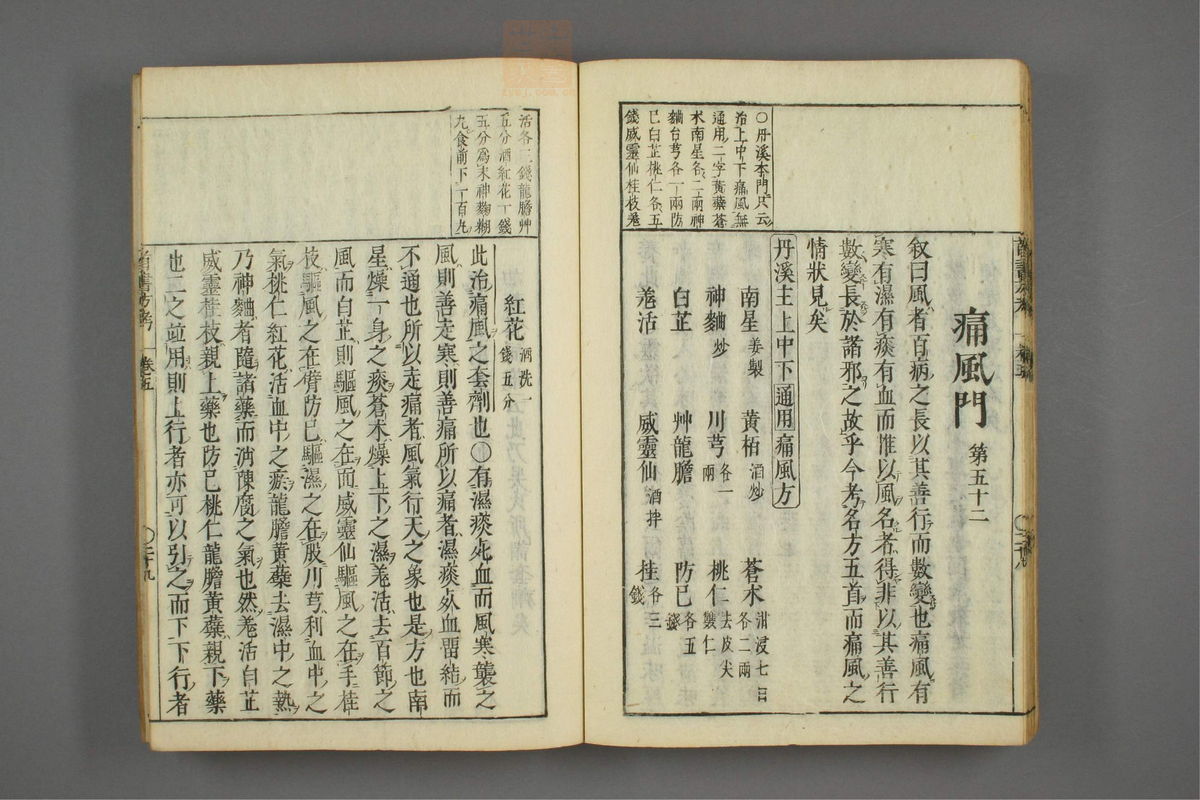 ○丹溪本門只云
治上中下痛風無
通用二字黃蘗蒼
朮南星各二兩神
麯台芎各一兩防
巳白芷桃仁各五
錢威靈仙桂枝羌
痛風門 第五十二
叙曰風者百病之長以其善行而數變也痛風有
寒有濕有痰有血而惟以風名者得非以其善行
數變長於諸邪之故乎今考名方五首而痛風之
情狀見矣
丹溪主上中下通用痛風方
南星 姜製 黃栢 酒炒 蒼朮 泔浸七日各二兩
神麯 炒 川芎 各一兩 桃仁 去皮尖
白芷 艸龍膽 防巳 各五
羌活 威靈仙 酒拌 桂 各三錢
活各三錢龍膽艸
五分酒紅花一錢
五分爲末神麴糊
丸食前下一百丸
紅花 酒洗一錢五分
此治痛風之套劑也○有濕痰死血而風寒襲之
風則善走寒則善痛所以痛者濕痰死血畱結而
不通也所以走痛者風氣行天之象也是方也南
星燥一身之痰蒼朮燥上下之濕羌活去百節之
風而白芷則驅風之在面威靈仙驅風之在手桂
枝驅風之在臂防巳驅濕之在股川芎利血中之
氣桃仁紅花活血中之瘀龍膽黃蘗去濕中之熱
乃神麯者隨諸藥而消陳腐之氣也然羌活白芷
威靈桂枝親上藥也防巳桃仁龍膽黃蘗親下藥
也二之並用則上行者亦可以引之而下下行者